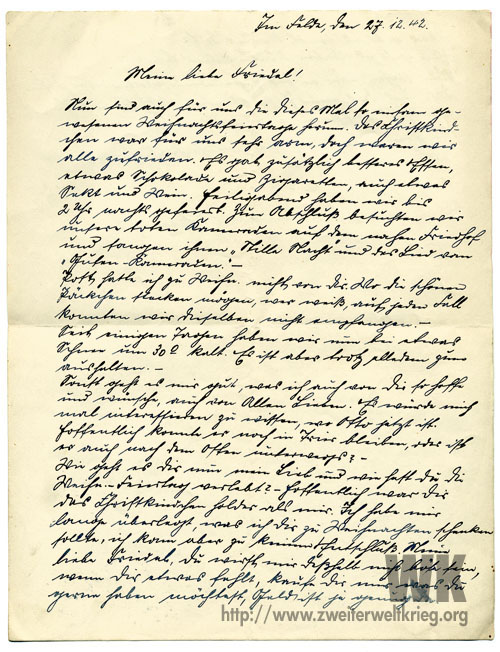 Im Felde, den 27.12.42.
Meine liebe Friedel!
Nun sind auch für uns die dieses Mal so einsam ge-
wesenen Weihnachtsfeiertage herum. Das Christkind-
chen war für uns sehr arm, doch waren wir
alle zufrieden. Es gab zusätzlich besseres Essen,
etwas Schokolade und Zigaretten, auch etwas
Sekt und Wein. Heiligabend haben wir bis
2 Uhr nachts gefeiert. Zum Abschluß besuchten wir
unsere toten Kameraden auf dem nahen Friedhof
und sangen ihnen „Stille Nacht" und das Lied vom
„Guten Kameraden." –
Post hatte ich zu Weihn. nicht von Dir. Wo die schönen
Päckchen stecken mögen, wer weiß, auf jeden Fall
konnten wir dieselben nicht empfangen. –
Seit einigen Tagen haben wir nun bei etwas
Schnee um 30° kalt. Es ist aber trotz alledem zum
aushalten. –
Sonst geht es mir gut, was ich auch von Dir so hoffe
und wünsche, auch von Allen Lieben. Es würde mich
mal interessieren zu wissen, wo Otto jetzt ist.
Hoffentlich konnte er noch in Trier bleiben, oder ist
er auch nach dem Osten unterwegs? –
Wie geht es Dir nun mein Lieb und wie hast Du die
Weihn.-Feiertag verlebt? – Hoffentlich war Dir
das Christkindchen holder als mir. Ich habe mir
lange überlegt, was ich Dir zu Weihnachten schenken
sollte, ich kam aber zu keinem Entschluß. Meine
liebe Friedel, Du wirst mir deshalb nicht böse sein,
wenn Dir etwas fehlt, kaufe Dir nur was Du
gerne haben möchtest, Geld ist ja genügend
WK
http://www.zweiterweltkrieg.org